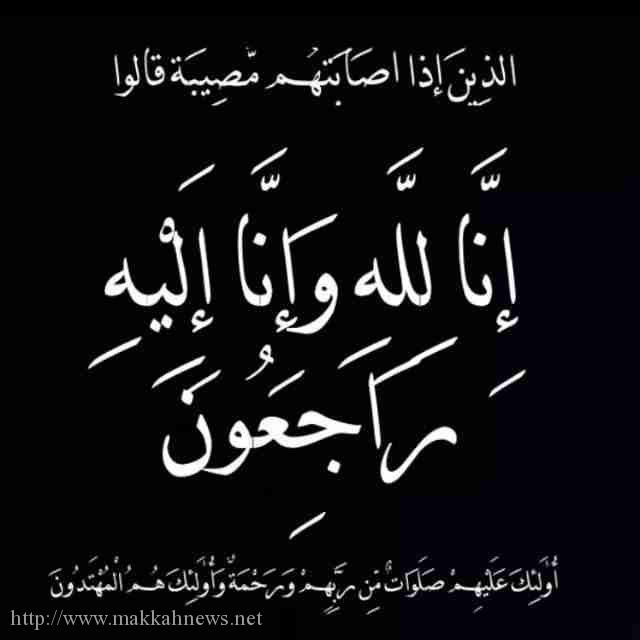 الذِينَ إذا اصَابَتهُم مّصِيبَة قالوا
إِنَّا للَّه وَإِنَّا إِلَيْهِ
رَاجِعُونَ
أُولَئِكَ عَلَيْهِمْ صَلَوَاتٌ مِّن رَبِّهِمْ وَرَحْمَةٌ وَأُولَئِكَ هُمُ الْمُهْتَدُونَ
http://www.makkahnews.net